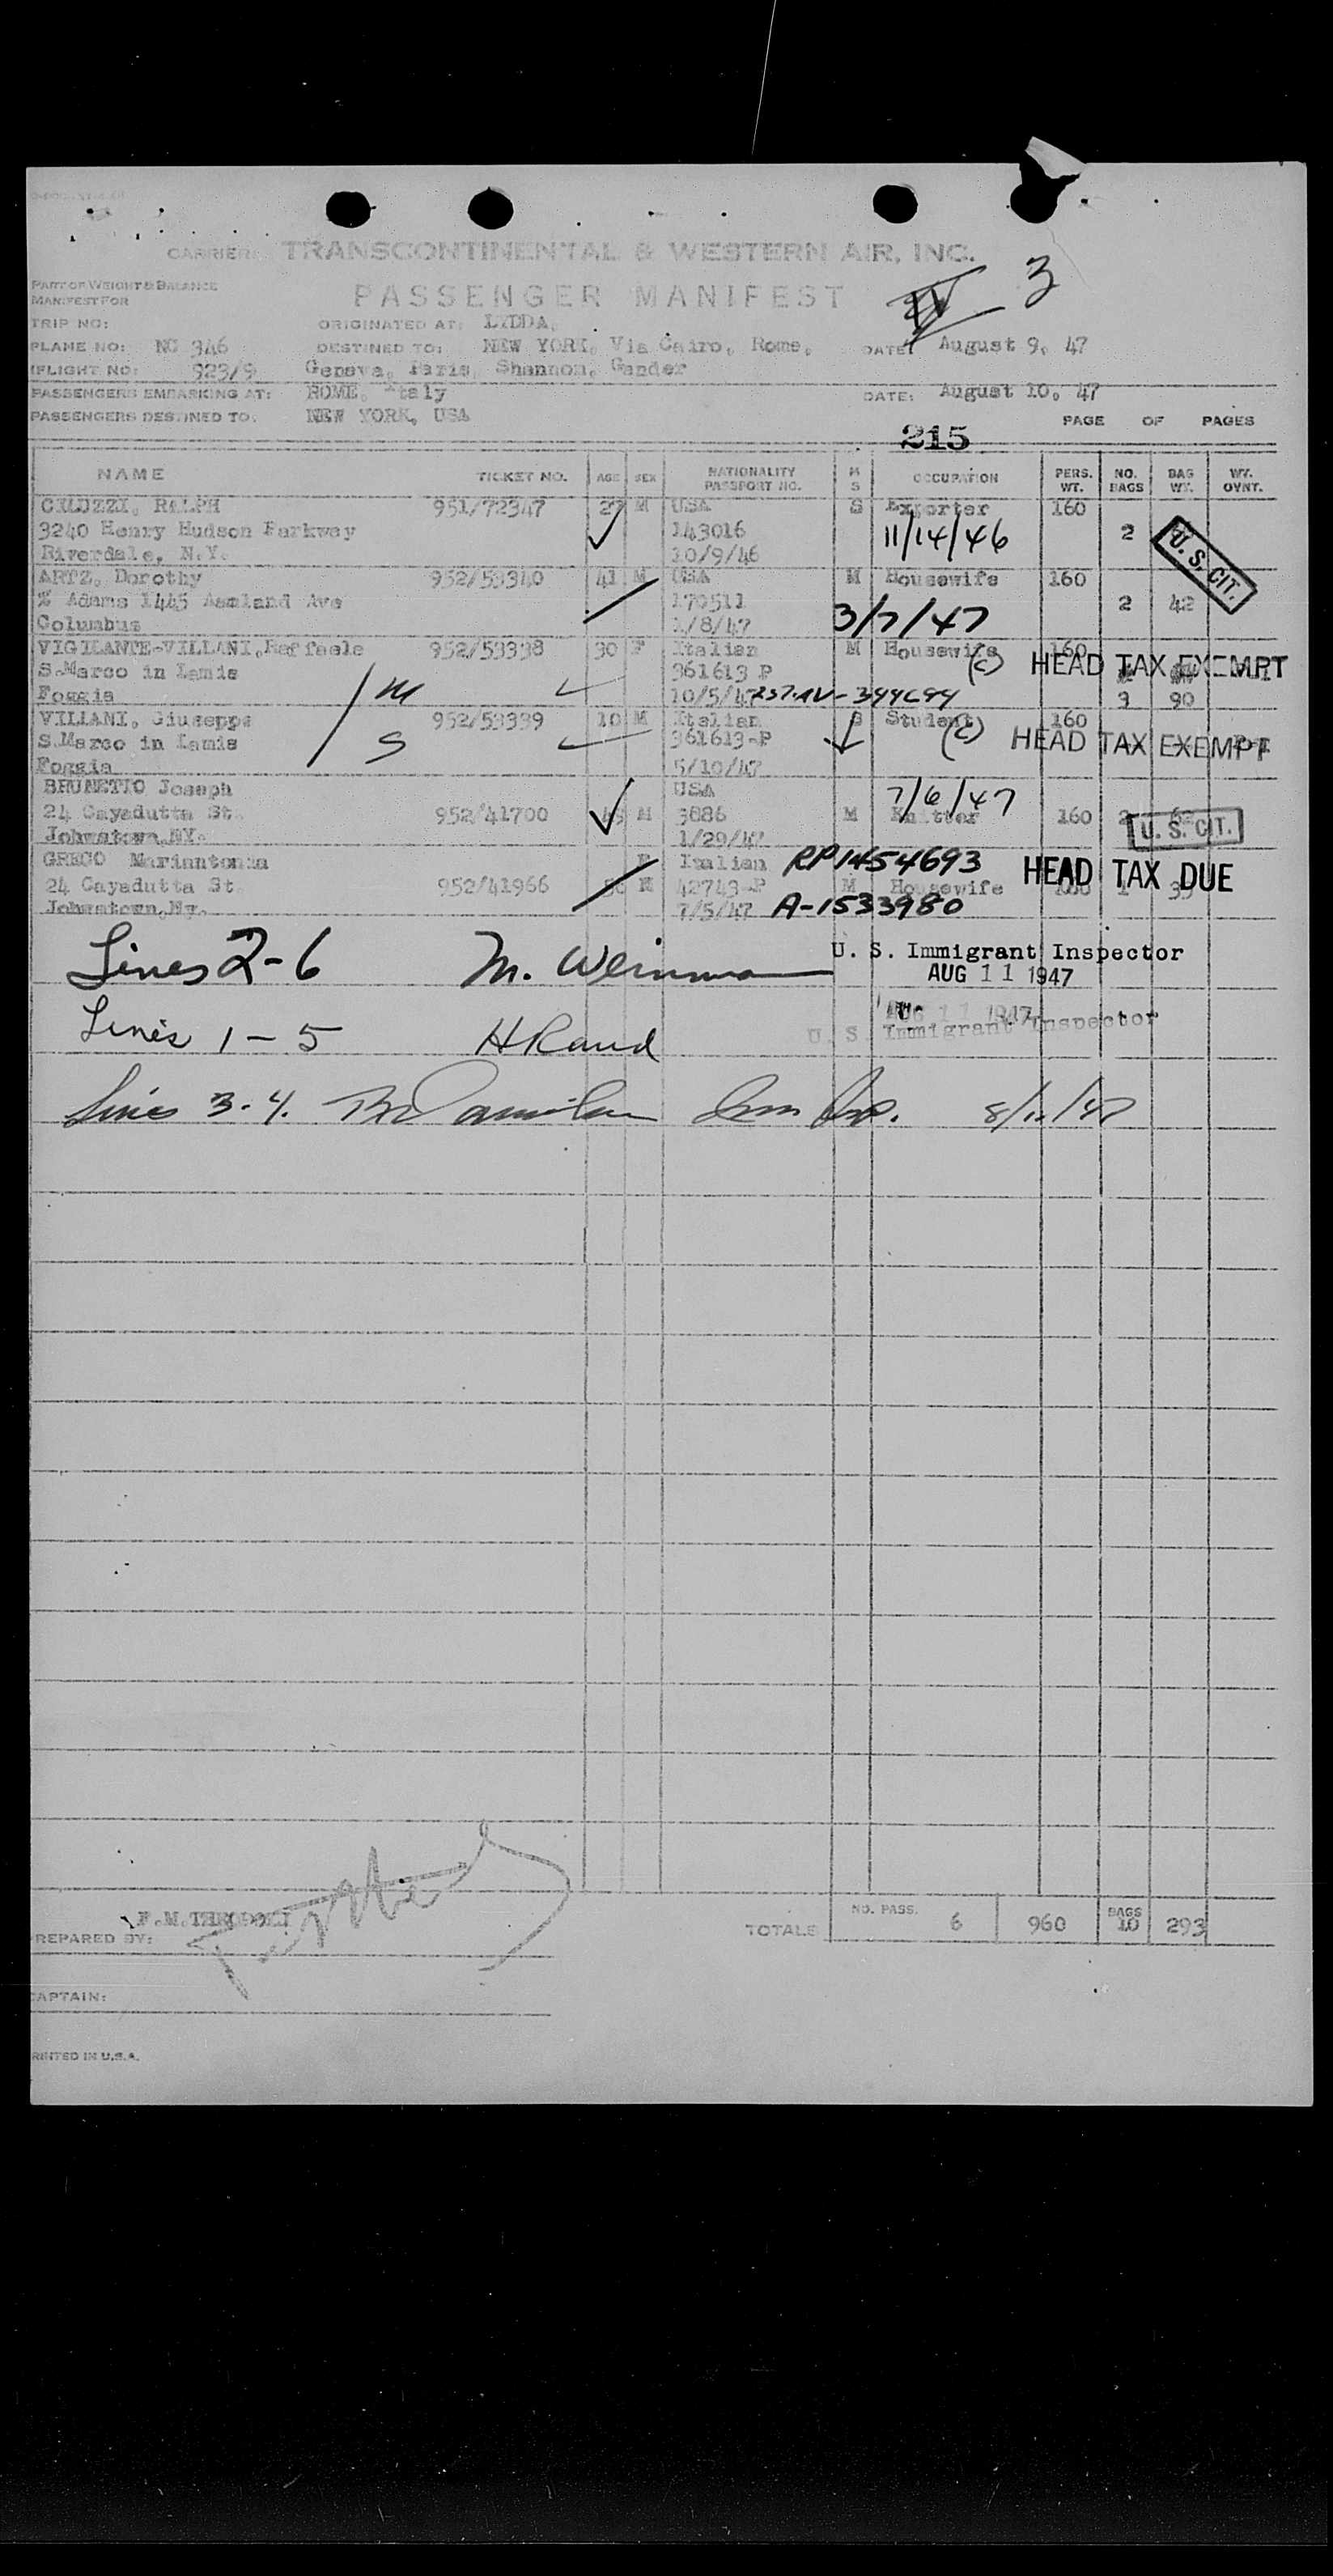 CARRIER: TRANSCONTINENTAL & WESTERN AIR, INC.
PART OF WEIGHT & BALANCE
MANIFEST FOR
PASSENGER MANIFEST
3
TRIP NO: ORIGINATED AT: LYDDA,
PLANE NO: NC 346 DESTINED TO: NEW YORK, Via Cairo, Rome, DATE: August 9, 47
(FLIGHT NO: 923/9 Geneva, Paris, Shannon, Gander
PASSENGERS EMBARKING AT: ROME, Italy DATE: August 10, 47
PASSENGERS DESTINED TO: NEW YORK, USA
215 PAGE OF PAGES
NAME TICKET NO. AGE SEX NATIONALITY PASSPORT NO. M S OCCUPATION PERS. WT. NO. BAGS BAG WT. WY. OVNT.
RALPH 951/72347 27 M USA S Exporter 160
3240 Henry Hudson Parkway 143016 11/14/46 2 U. S. CIT.
Riverdale, N.Y. 10/9/46
ARTZ, Dorothy 952/53340 41 M USA M Housewife 160
% Adams 1445 Ave 170511 2 42
Columbus 1/8/47 3/7/47
VIGILANTE-VILLANI, Raffaele 952/53338 30 F Italian M Housewife 160 (c) HEAD TAX EXEMPT
S.Marco in Lamis M 361613 P
Foggia 10/5/47 3 90
VILLANI, Giuseppe 952/53339 10 M Italian S Student 160 (c)
S.Marco in Lamis S 361613-P HEAD TAX EXEMPT
Foggia 5/10/47
Joseph USA 7/6/47
24 Cayadutta St. 952/41700 M 3886 M 160 2 U. S. CIT.
Johnstown, NY. 1/29/47
GRECO Mariantonia F Italian RP1454693 HEAD TAX DUE
24 Cayadutta St 952/41966 42743-P M Housewife 160 1
Johnstown, Ny. 7/5/47 A-1533980
Lines 2-6 M. U. S. Immigrant Inspector
AUG 11 1947
AUG 11 1947
Lines 1-5 H Rand U. S. Immigrant Inspector
Lines 3-4.
F.M.
PREPARED BY:
TOTALS NO. PASS. 6 960 BAGS 10 293
CAPTAIN:
PRINTED IN U.S.A.